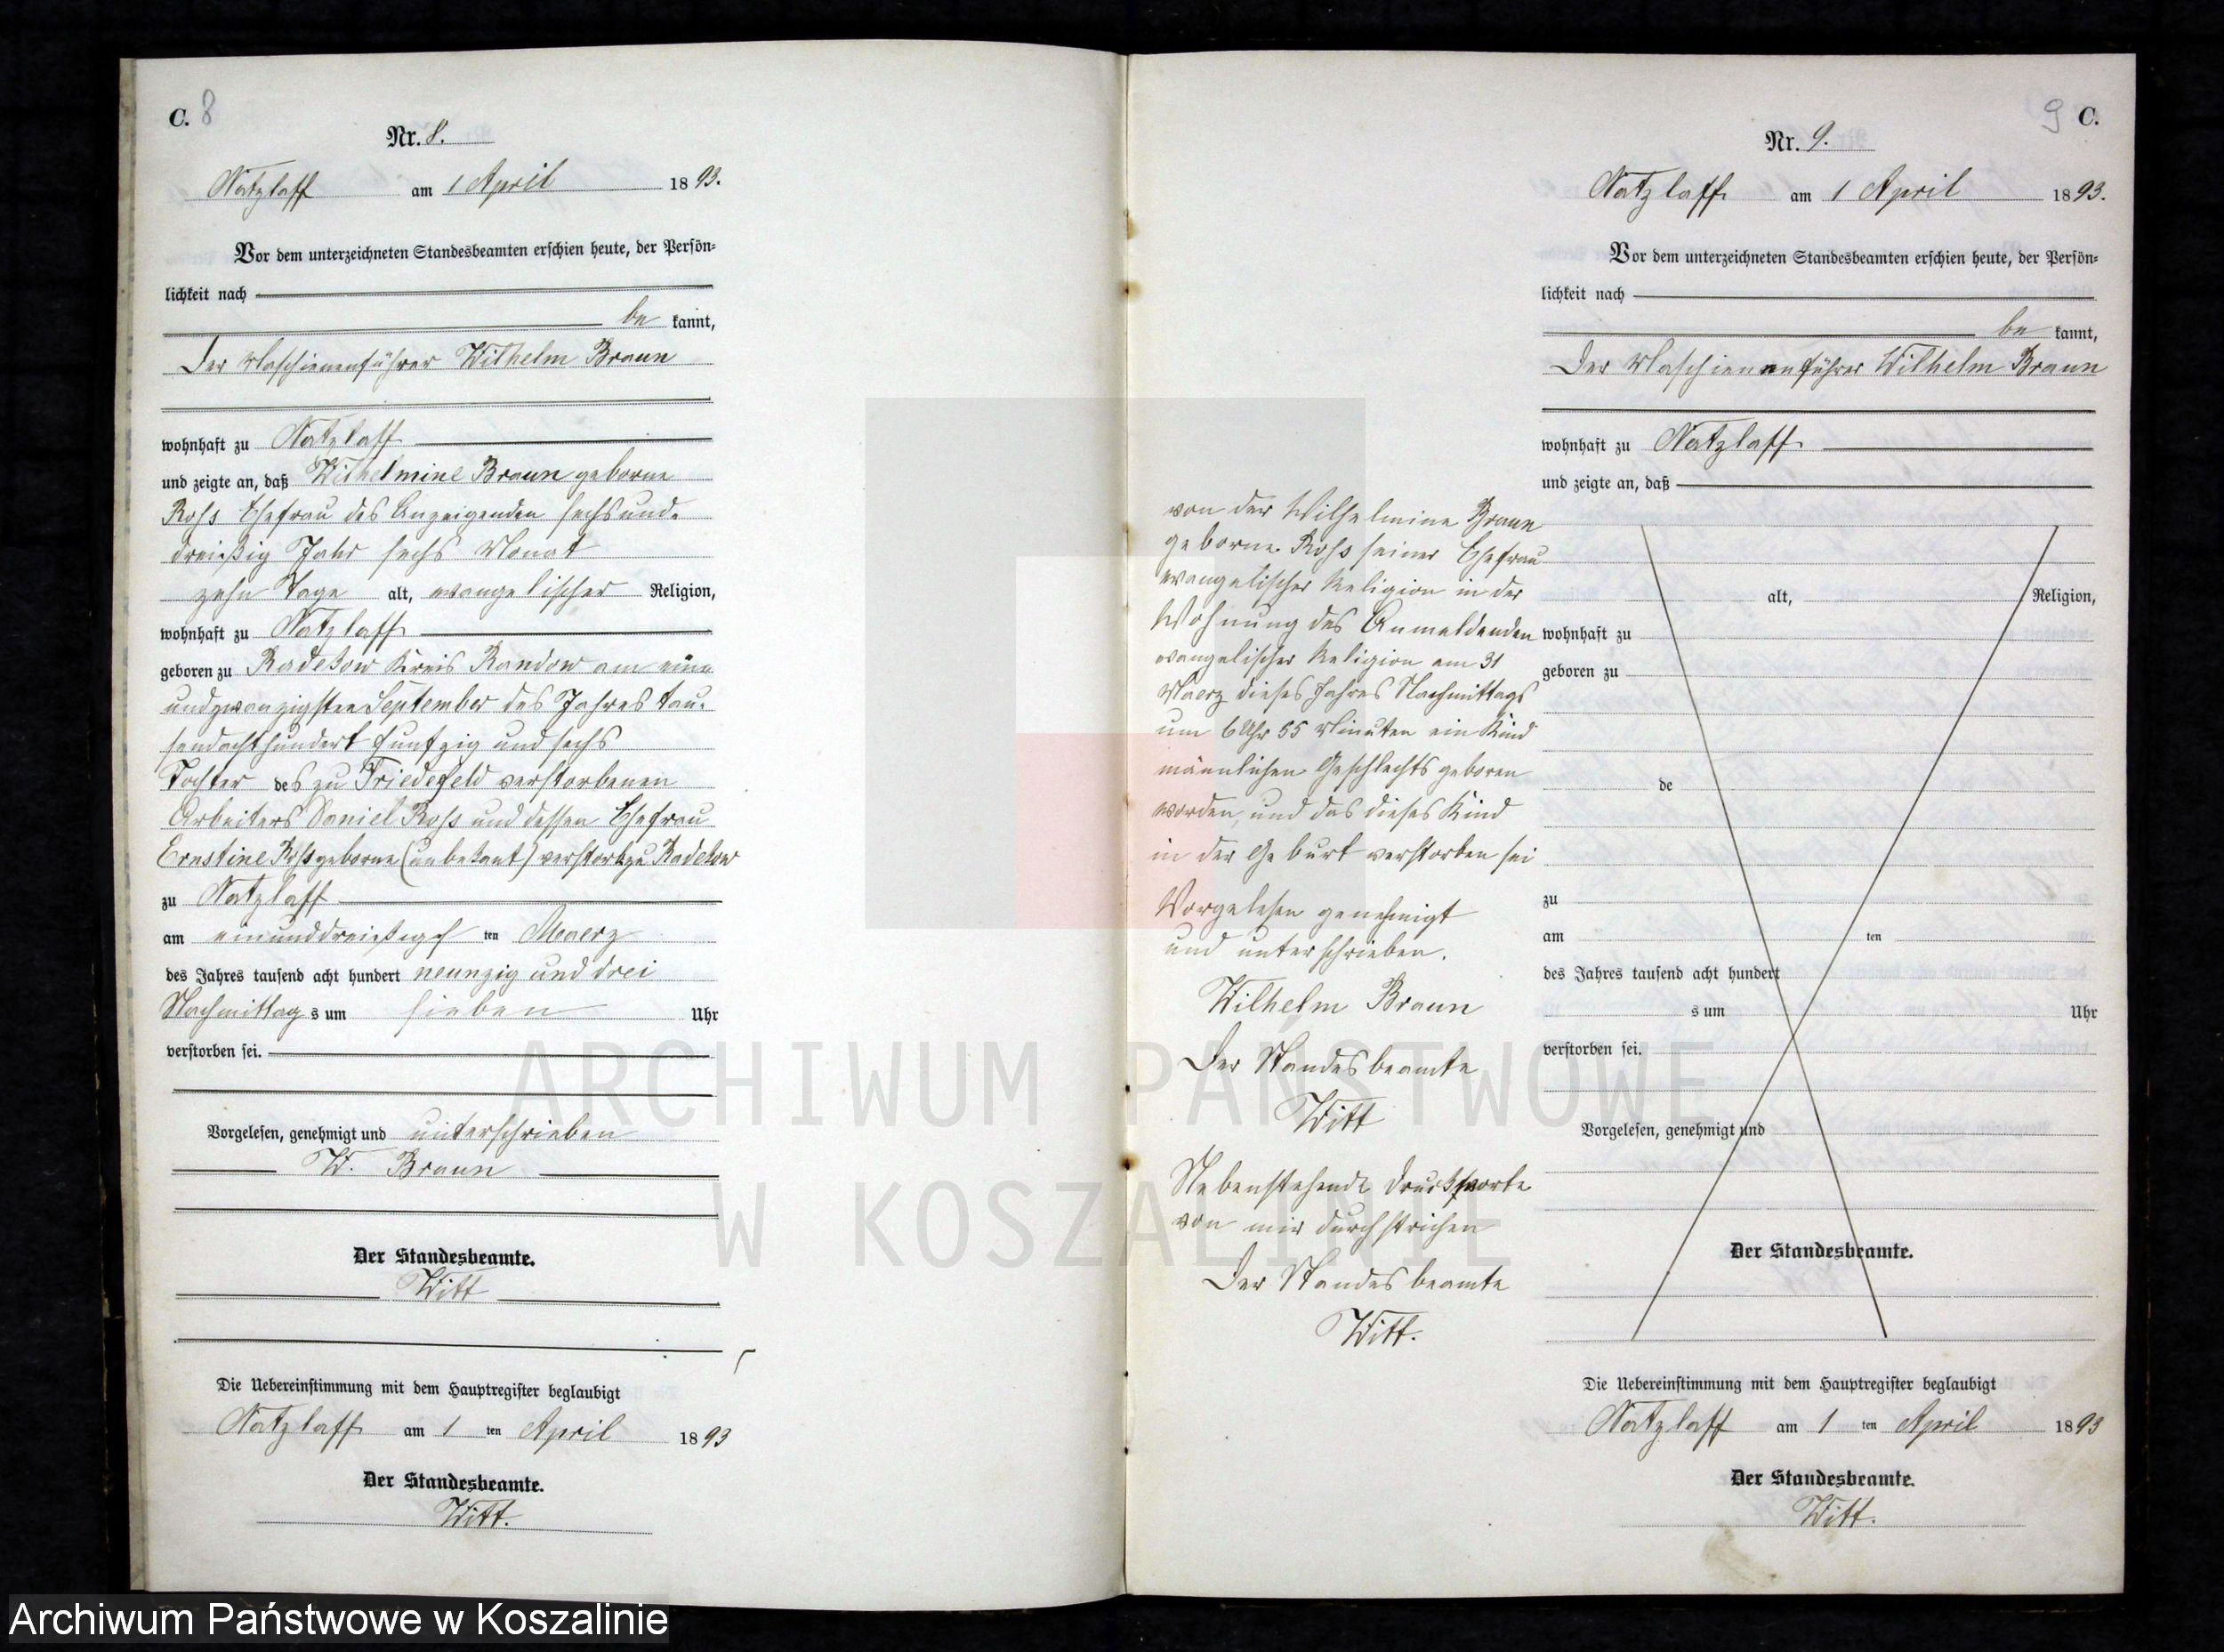 C. 8
Nr. 8.
Natzlaff am 1 April 1893.
Vor dem unterzeichneten Standesbeamten erschien heute, der Persön-
lichkeit nach
be kannt,
Der Maschienenführer Wilhelm Braun
wohnhaft zu Natzlaff
und zeigte an, daß Wilhelmine Braun geborne
Ross Ehefrau des Anzeigenden sechsund-
dreißig Jahr sechs Monat
zehn Tage alt, evangelischer Religion,
wohnhaft zu Natzlaff
geboren zu Radekow Kreis Randow am ein
undzwanzigsten September des Jahres tau-
sendachthundert funfzig und sechs
Tochter des zu Friedefeld verstorbenen
Arbeiters Daniel Ross und dessen Ehefrau
Ernstine Ross geborne (unbekant) verstorb zu Radekow
zu Natzlaff
am einunddreißigst ten Maerz
des Jahres tausend acht hundert neunzig und drei
Nachmittag s um sieben Uhr
verstorben sei.
Vorgelesen, genehmigt und unterschrieben
W. Braun
Der Standesbeamte.
Witt
Die Uebereinstimmung mit dem Hauptregister beglaubigt
Natzlaff am 1 ten April 1893
Der Standesbeamte.
Witt.
9 C.
Nr. 9.
Natzlaff am 1 April 1893.
Vor dem unterzeichneten Standesbeamten erschien heute, der Persön-
lichkeit nach
be kannt,
Der Maschienenführer Wilhelm Braun
wohnhaft zu Natzlaff
und zeigte an, daß
von der Wilhelmine Braun
geborne Ross seiner Ehefrau
evangelischer Religion in der
Wohnung des Anmeldenden
evangelischer Religion am 31
Maerz dieses Jahres Nachmittags
um 6 Uhr 55 Minuten ein Kind
männlichen Geschlechts geboren
worden, und das dieses Kind
in der Geburt verstorben sei
Vorgelesen genehmigt
und unterschrieben.
Wilhelm Braun
Der Standesbeamte
Witt
Nebenstehende Druckworte
von mir durchstrichen
Der Standesbeamte
Witt.
alt, Religion,
wohnhaft zu
geboren zu
de
zu
am ten
des Jahres tausend acht hundert
s um Uhr
verstorben sei.
Vorgelesen, genehmigt und
Der Standesbeamte.
Die Uebereinstimmung mit dem Hauptregister beglaubigt
Natzlaff am 1 ten April 1893
Der Standesbeamte.
Witt.
ARCHIWUM PAŃSTWOWE
W KOSZALINIE
Archiwum Państwowe w Koszalinie